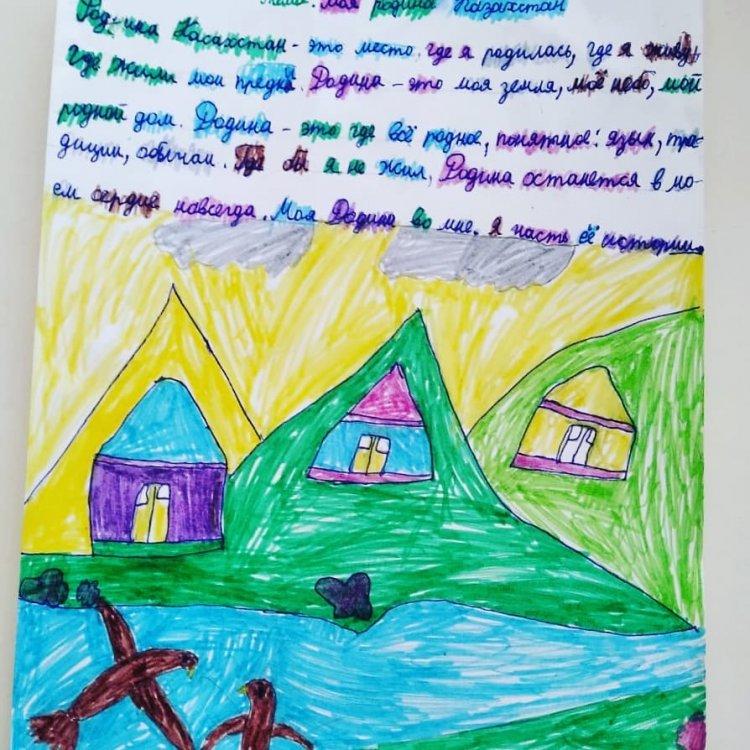 Тема: Моя родина Казахстан
Родника Касахстан - это место где я родилась, где я живу,
Где жили мои предки. Родина - это моя земля, моё небо, мой
родной дом. Родина - это где всё родное, понятное: язык, тра-
диции, обычаи. Где бы я не жил, Родина останется в мо-
ем сердце навсегда. Моя Родина во мне. Я часть её истории.